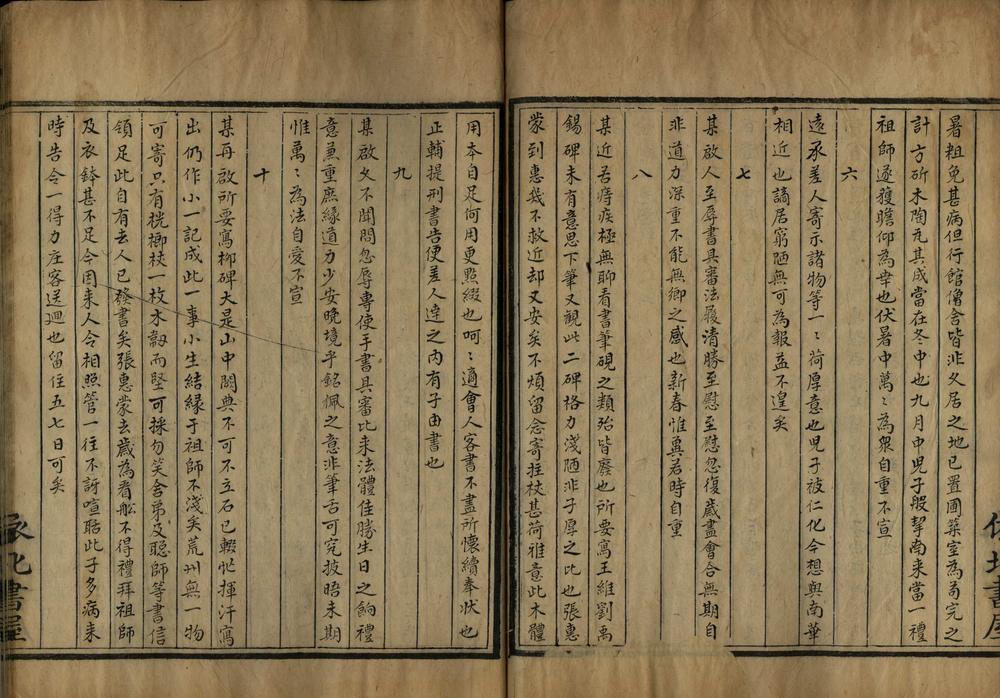 暑粗免甚病但行館僧舍皆非久居之地已置圃築室為苟完之
計方斫木陶瓦其成當在冬中也九月中児子般挈南来當一禮
祖師遂獲瞻仰為幸也伏暑中萬〻為衆自重不宣
六
遠承差人寄示諸物等一〻荷厚意也児子被仁化今想與南華
相近也謫居窮陋無可為報益不遑矣
七
某啟人至辱書具審法履清勝至慰至慰忽復歲盡會合無期自
非道力深重不能無鄉之感也新春惟兾若時自重
八
某近苦痔疾極無聊看書筆硯之類殆皆廢也所要寫王維劉禹
錫碑未有意思下筆又觀此二碑格力淺陋非子厚之比也張惠
蒙到惠幾不救近却又安矣不煩留念寄拄杖甚荷雅意此木體
用本自足何用更點綴也呵〻適會人客書不盡所懷續奉狀也
正輔提刑書告便差人逹之内有子由書也
九
某啟久不聞問忽辱專使手書具審比来法體佳勝生日之餉禮
意蒹重庶緣道力少安晚境乎銘佩之意非筆舌可究披晤未期
惟萬〻為法自愛不宣
十
某再啟所要寫栁碑大是山中闕典不可不立石已輟忙揮汗寫
出仍作小一記成此一事小生結縁于祖師不淺矣荒州無一物
可寄只有桄榔杖一枚木韌而堅可採勿笑舍弟及聡師等書信
領足此自有去人已發書矣張惠蒙去歲為看舩不得禮拜祖師
及衣鉢甚不足今因来人令相照管一往不訝喧聒此子多病来
時告令一得力庄客送廻也留住五七日可矣
承化書屋